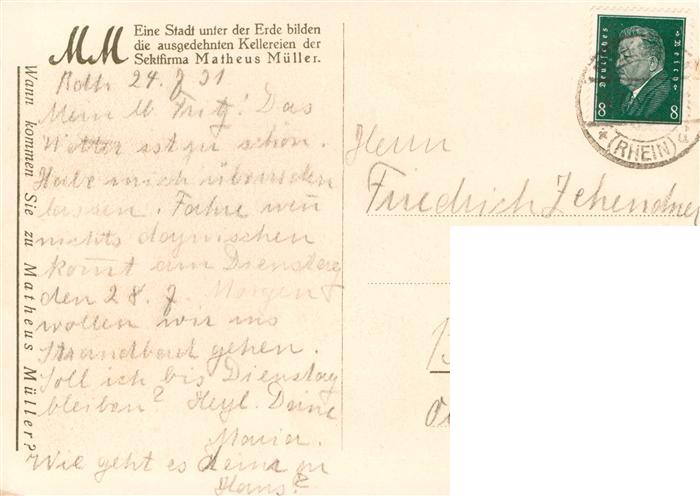 MM
Eine Stadt unter der Erde bilden
die ausgedehnten Kellereien der
Sektfirma Matheus Müller.
Wann kommen Sie zu Matheus Müller?
24. 7. 31
Mein lb Fritz! Das
Wetter ist zu schön.
Habe mich überreden
lassen. Fahre wen̄
nichts dazwischen
kom̄t am Dienstag
den 28. 7. Morgen
wollen wir ins
Strandbad gehen.
Soll ich bis Dienstag
bleiben? Herzl. Deine
Maria.
Wie geht es deinem
Hans?
Deutsches Reich
8 8
(RHEIN)
Herrn
Friedrich Zehendner